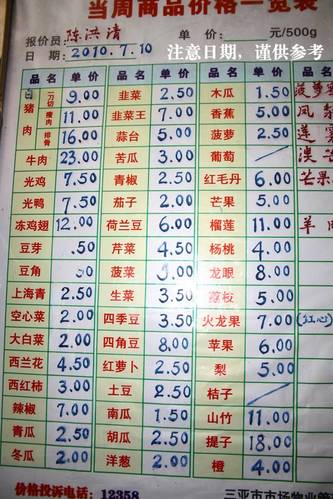 当周商品价格一览表
报价员: 陈洪清 元/500g
日期: 2010.7.10
注意日期，谨供参考
品名 单价 品名 单价 品名 单价 品名
猪肉 一刀切 9.00 韭菜 2.50 木瓜 1.50 菠萝
瘦肉 11.00 韭菜王 7.00 香蕉 5.00
排骨 16.00 蒜台 5.00 菠萝 2.50
牛肉 23.00 苦瓜 3.00 葡萄
光鸡 7.50 青椒 2.50 红毛丹 6.00 芒果
光鸭 7.50 茄子 2.00 芒果 5.00
冻鸡翅 12.00 荷兰豆 6.00 榴莲 11.00 羊
豆芽 .50 芹菜 4.50 杨桃 4.00
豆角 菠菜 5.00 龙眼 8.00
上海青 2.50 生菜 3.50 5.00
空心菜 2.00 四季豆 3.50 火龙果 7.00 (红心)
大白菜 2.00 四角豆 8.00 苹果 6.00
西兰花 4.50 红萝卜 2.50 梨 5.00
西红柿 3.00 土豆 2.50 桔子
辣椒 7.00 南瓜 1.50 山竹 11.00
青瓜 2.00 胡瓜 2.50 提子 18.00
冬瓜 2.00 洋葱 2.00 橙 4.00
价格投诉电话: 12358 三亚市市场物业